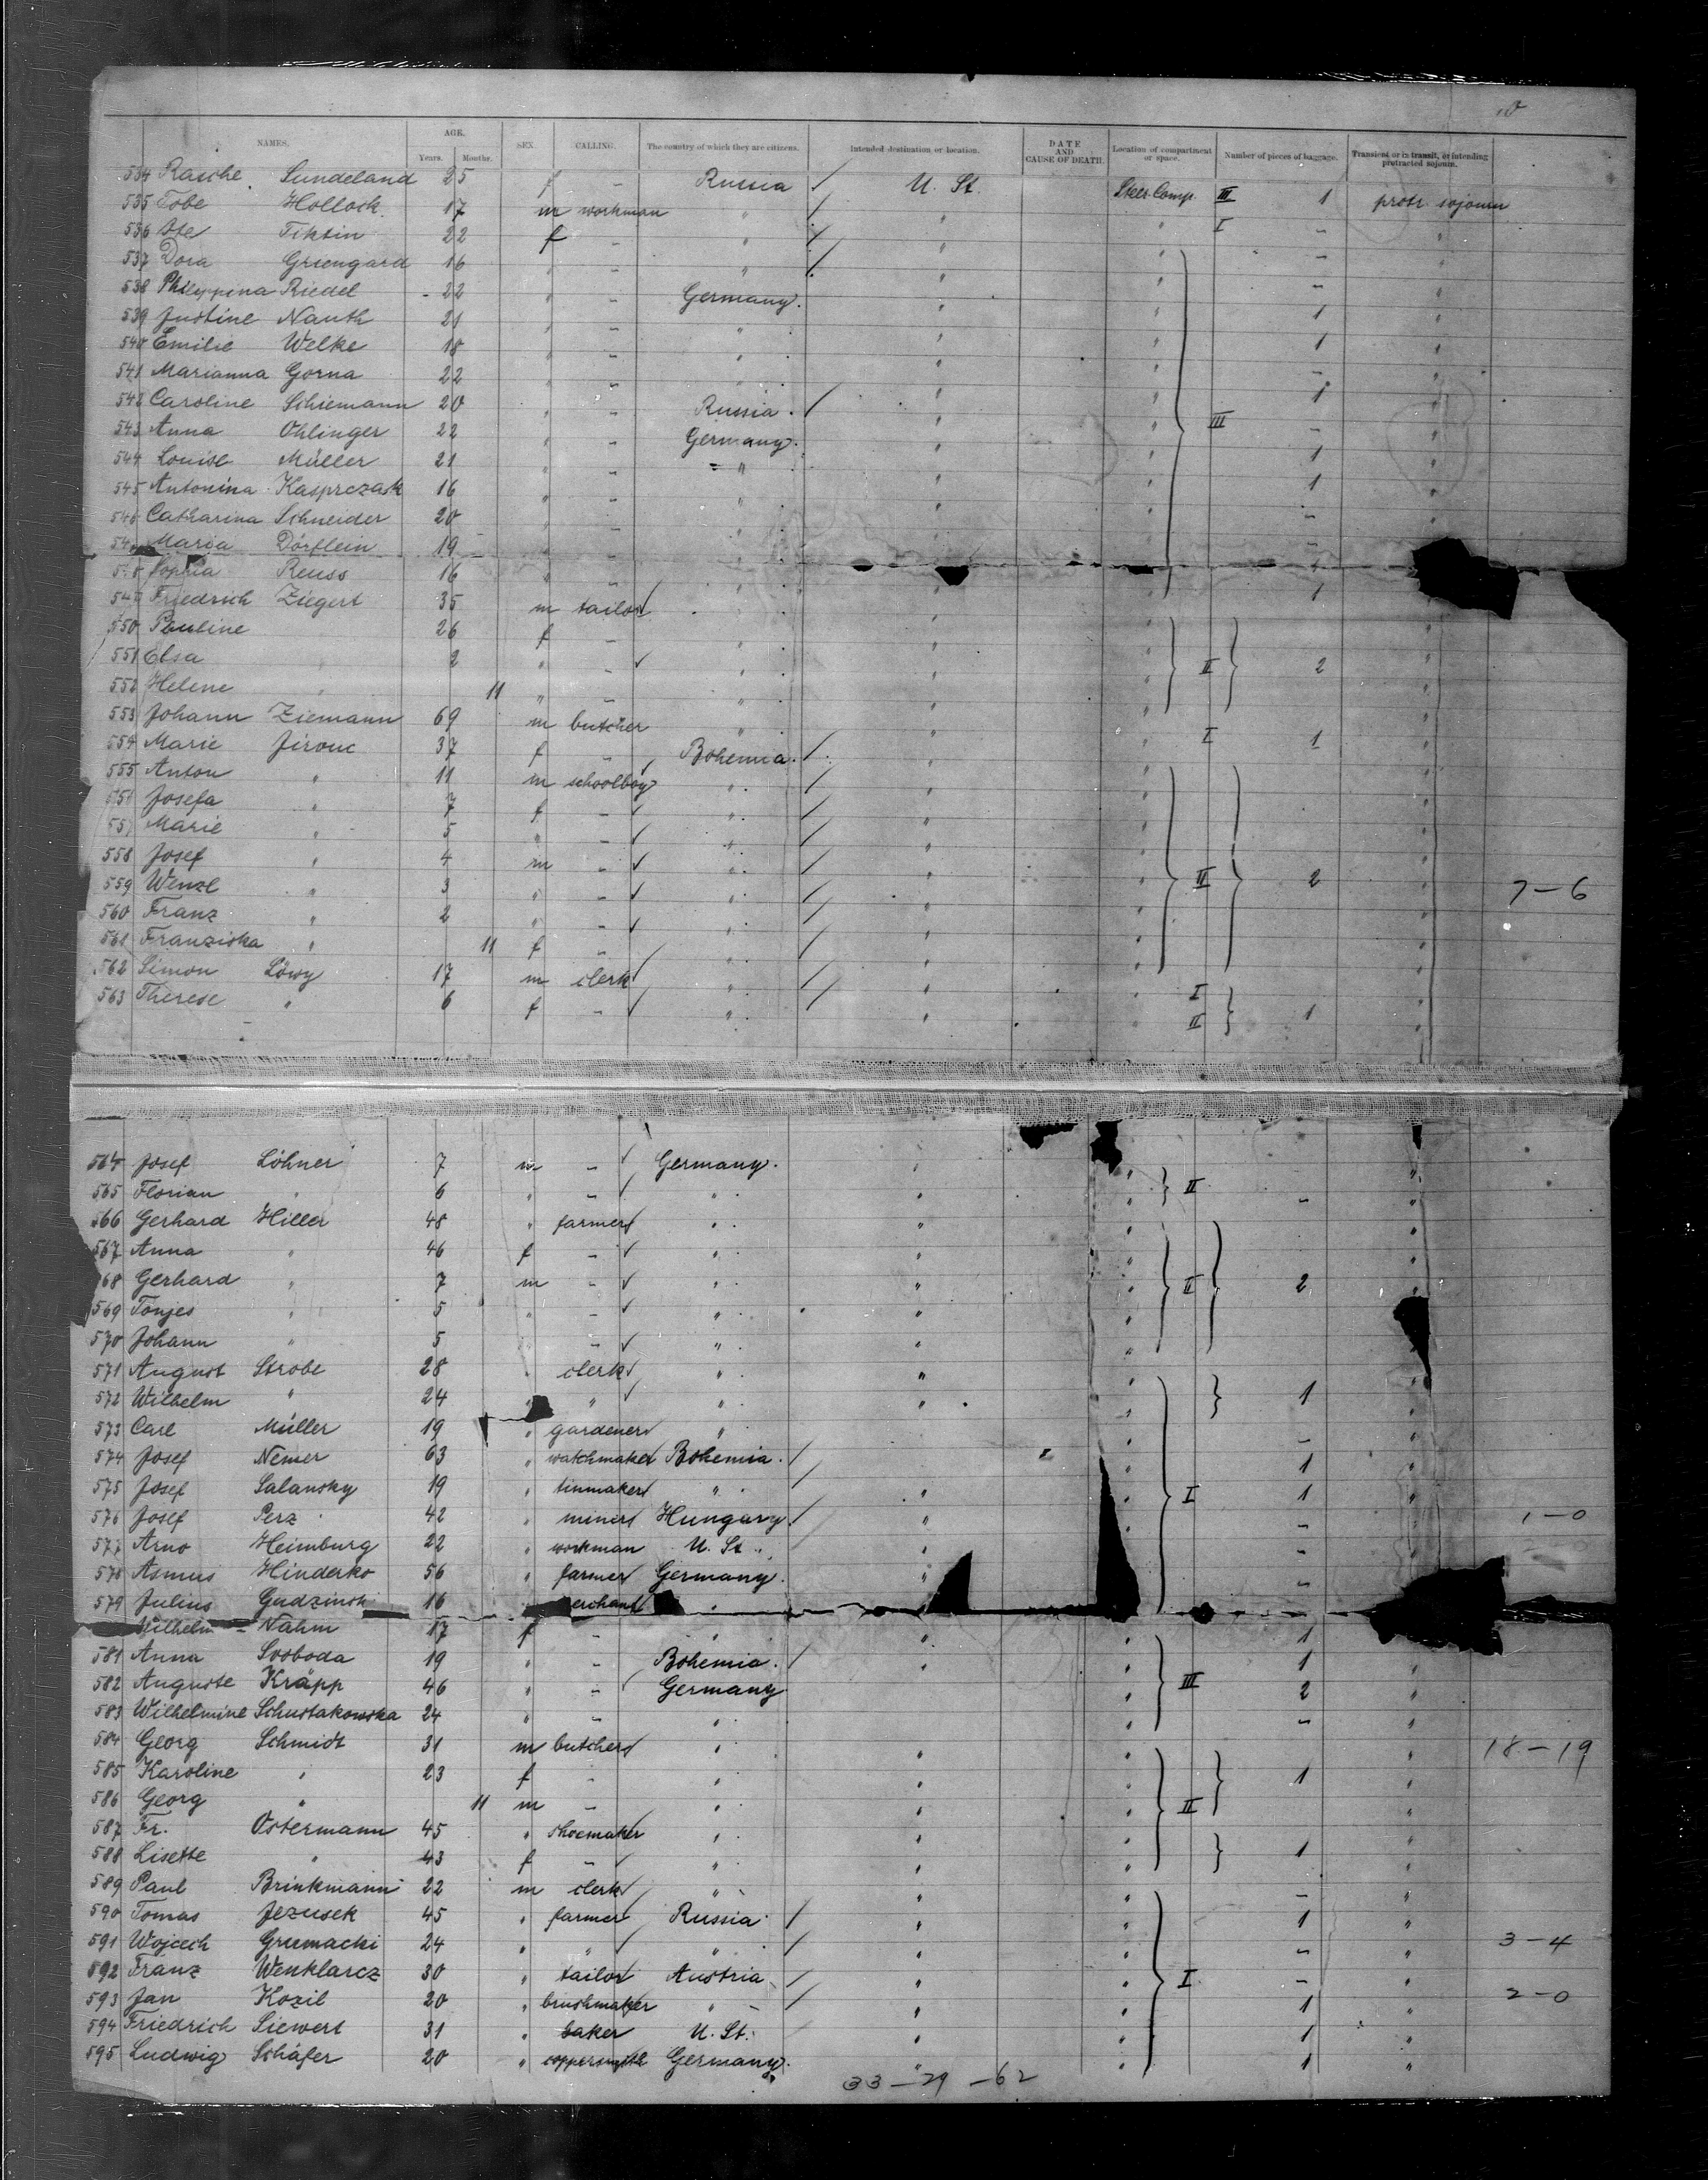 NAMES. AGE. Years. Months. SEX. CALLING. The country of which they are citizens. Intended destination or location. DATE AND CAUSE OF DEATH. Location of compartment or space. Number of pieces of baggage. Transient or in transit, or intending protracted sojourn.
534 Rasche Sundeland 25 f - Russia U. St. Steer. Comp. III 1 protr sojourn
535 Tobe Hollock 17 m workman " " " I - "
536 Ste Tiktin 22 f - " " " - "
537 Dora Griengard 16 " - " " " - "
538 Philippina Riedel 22 " - Germany. " " 1 "
539 Justine Nauth 21 " - " " " 1 "
540 Emilie Welke 18 " - " " " - "
541 Marianna Gorna 22 " - " " " 1 "
542 Caroline Schiemann 20 " - Russia. " " III - "
543 Anna Ohlinger 22 " - Germany. " " 1 "
544 Louise Müller 21 " - " " " 1 "
545 Antonina Kasprczak 16 " - " " " - "
546 Catharina Schneider 20 " - " " " - "
54 Maria Dörflein 19 " - " " "
Sophia Reuss 16 " - " " " 1 "
549 Friedrich Ziegert 35 m tailor " " " "
550 Pauline 26 f - " " " "
551 Elsa " 2 " - " " " II 2 "
552 Helene " 11 " - " " " "
553 Johann Ziemann 69 m butcher " " " I 1 "
554 Marie Jirouc 37 f - Bohemia. " " "
555 Anton " 11 m schoolboy " " " "
556 Josefa " 7 f - " " " "
557 Marie " 5 " - " " " "
558 Josef " 4 m - " " " II 2 "
559 Wenzl " 3 " - " " " " 7-6
560 Franz " 2 " - " " " "
561 Franziska " 11 f - " " " "
562 Simon Löwy 17 m clerk " " " I "
563 Therese " 6 f - " " " II 1 "
564 Josef Löhner 7 m - Germany. " " "
565 Florian " 6 " - " " " II - "
566 Gerhard Hiller 48 " farmer " " " "
567 Anna " 46 f - " " " "
68 Gerhard " 7 m - " " " II 2 "
569 Tonjes " 5 " - " " " "
570 Johann " 5 " - " " " "
571 August Strobe 28 " clerk " " " "
572 Wilhelm " 24 " " " " " 1 "
573 Carl Müller 19 " gardener " " - "
574 Josef Nemer 63 " watchmaker Bohemia. " 1 "
575 Josef Salansky 19 " tinmaker " " " I 1 "
576 Josef Perz 42 " miner Hungary. " - " 1-0
577 Arno Heimburg 22 " workman U. St. " -
578 Asmus Hinderks 56 " farmer Germany. " -
579 Julius Gudzinsk 16 erchant "
Wilhelm Nahm 17 f - " " " 1
581 Anna Svoboda 19 " - Bohemia. " " 1 "
582 Auguste Kräpp 46 " - Germany " III 2 "
583 Wilhelmine Schustakowska 24 " - " " - "
584 Georg Schmidt 31 m butcher " " " " 18-19
585 Karoline " 23 f - " " " 1
586 Georg " 11 m - " " " II "
587 Fr. Ostermann 45 " shoemaker " " " "
588 Lisette " 43 f - " " " 1 "
589 Paul Brinkmann 22 m clerk " " - "
590 Tomas Jezusek 45 " farmer Russia " " 1 "
591 Wojcech Grumacki 24 " " " " " - " 3-4
592 Franz Wenklarcz 30 " tailor Austria " " I - "
593 Jan Kozil 20 " brushmaker " " " 1 " 2-0
594 Friedrich Siewert 31 " baker U. St. " " 1 "
595 Ludwig Schäfer 20 " coppersmith Germany. " " 1 "
33-29-62